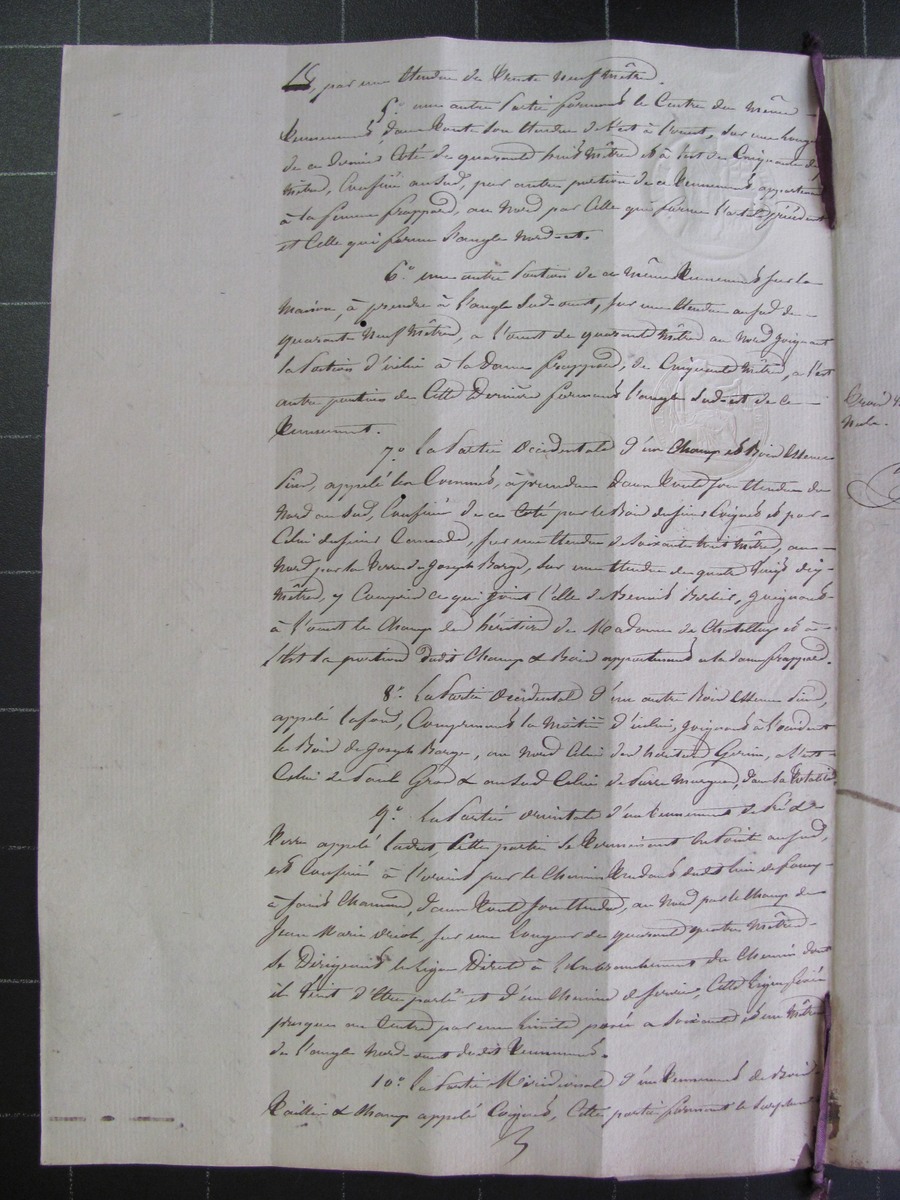 15, par une étendue de trente neuf mètres.
5° une autre partie formant le centre du même
tennement, dans toute son étendue de l'est à l'ouest, sur une longueur
de ce dernier côté de quarante huit mètres et à l'est de cinquante
mètres, confiné au sud, par autre portion de ce tennement appartenant
à la femme frappard, au nord par celle qui forme l'article précédent
et celle qui forme l'angle nord-est.
6° une autre portion de ce même tennement sur la
maison, à prendre à l'angle sud-ouest, sur une étendue au sud de
quarante neuf mètres, à l'ouest de quarante mètres au nord joignant
la portion d'icelui à la dame frappard, de cinquante mètres, à l'est
autre portion de cette dernière formant l'angle sud-est de ce
tennement.
7° la partie occidentale d'un champ et bois essence
pin, appelé les communes, à prendre dans toute son étendue du
nord au sud, confiné de ce côté par le bois du sieur Coignet et par
celui du sieur , sur une étendue de soixante huit mètres, au
nord, par la terre de Joseph Barge, sur une étendue de quatre vingt dix
mètres, y compris ce qui joint celle de Benoit , joignant
à l'ouest le champ des héritiers de Madame de Chatelus et à
l'est la portion dudit champ & bois appartenant à la dame frappard.
8° La partie occidentale d'un autre bois essence pin,
appelé lafont, comprenant la moitié d'icelui, joignant à l'occident
le bois de Joseph Barge, au nord celui des héritiers Gerin, à l'est
celui de Paul Gras & au sud celui de Pierre , dans sa totalité.
9° La partie orientale d'un tennement de pré &
terre appelé , cette partie se terminant en pointe au sud,
est confiné à l'orient par le chemin tendant dudit lieu de
à Saint Chamond, dans toute son étendue, au nord par le champ de
Jean Marie sur une longueur de quarante quatre mètres
se dirigeant en ligne directe à l'embranchement du chemin dont
il vient d'être parlé et d'un chemin de service, cette ligne fixée
presque au centre par une limite posée à soixante et un mètres
de l'angle nord-ouest dudit tennement.
10° la partie méridionale d'un tennement de bois
taillis & champ appelé Coignet, cette partie formant le